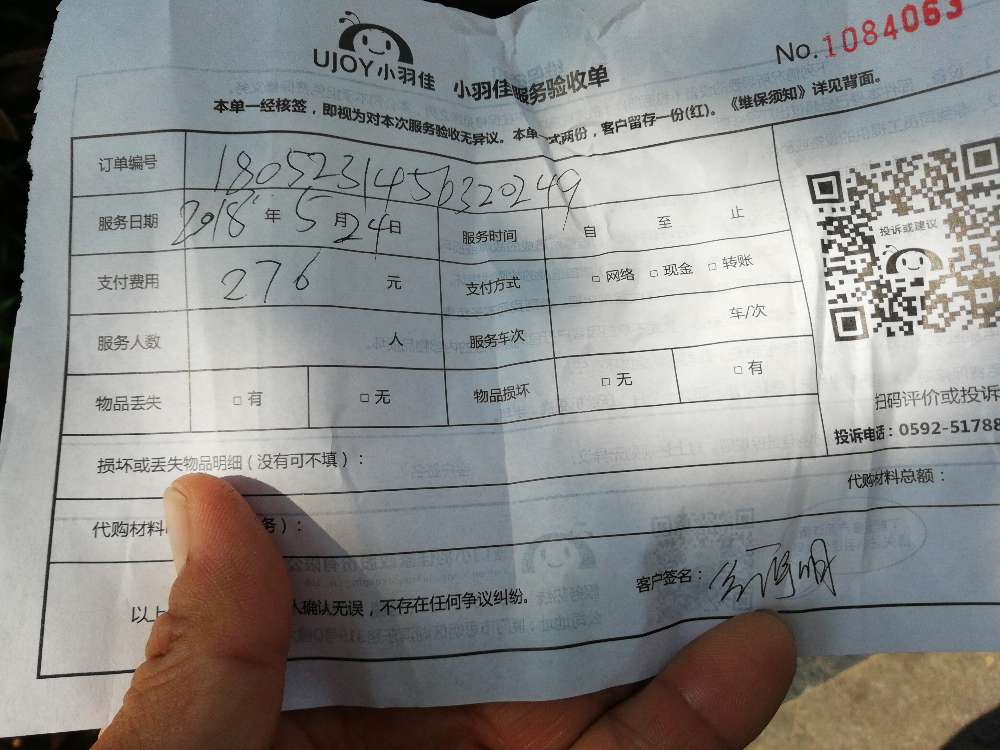 UJOY小羽佳 小羽佳服务验收单 No.1084063
本单一经核签，即视为对本次服务验收无异议。本单一式两份，客户留存一份(红)。《维保须知》详见背面。
订单编号 1805231456320249
服务日期 2018年5月24日 服务时间 自 至 止
支付费用 276 元 支付方式 □网络 □现金 □转账
服务人数 人 服务车次 车/次
物品丢失 □有 □无 物品损坏 □无 □有
投诉或建议
扫码评价或投诉
投诉电话：0592-51788
损坏或丢失物品明细（没有可不填）：
代购材料 务）： 代购材料总额：
客户签名：
以上 人确认无误，不存在任何争议纠纷。